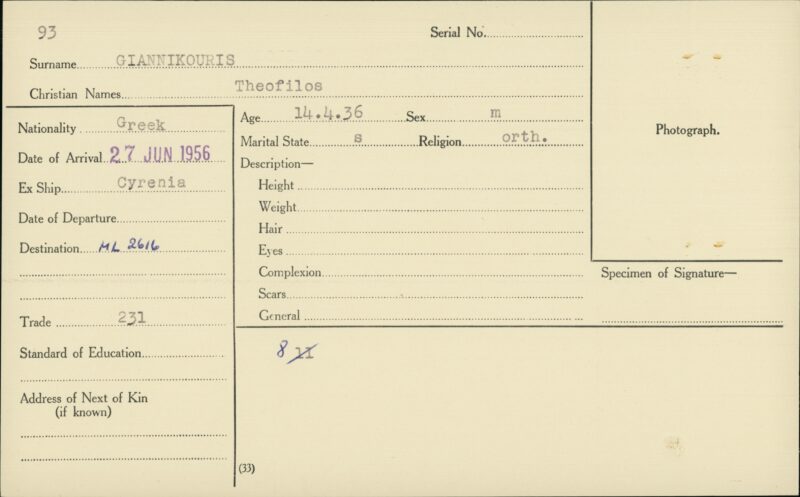 93
Serial No.
Surname GIANNIKOURIS
Christian Names Theofilos
Nationality Greek
Date of Arrival 27 JUN 1956
Ex Ship Cyrenia
Date of Departure
Destination ML 2616
Trade 231
Standard of Education
Address of Next of Kin
(if known)
Age 14.4.36 Sex m
Marital State s Religion orth.
Description—
Height
Weight
Hair
Eyes
Complexion
Scars
General
8
(33)
Photograph.
Specimen of Signature—